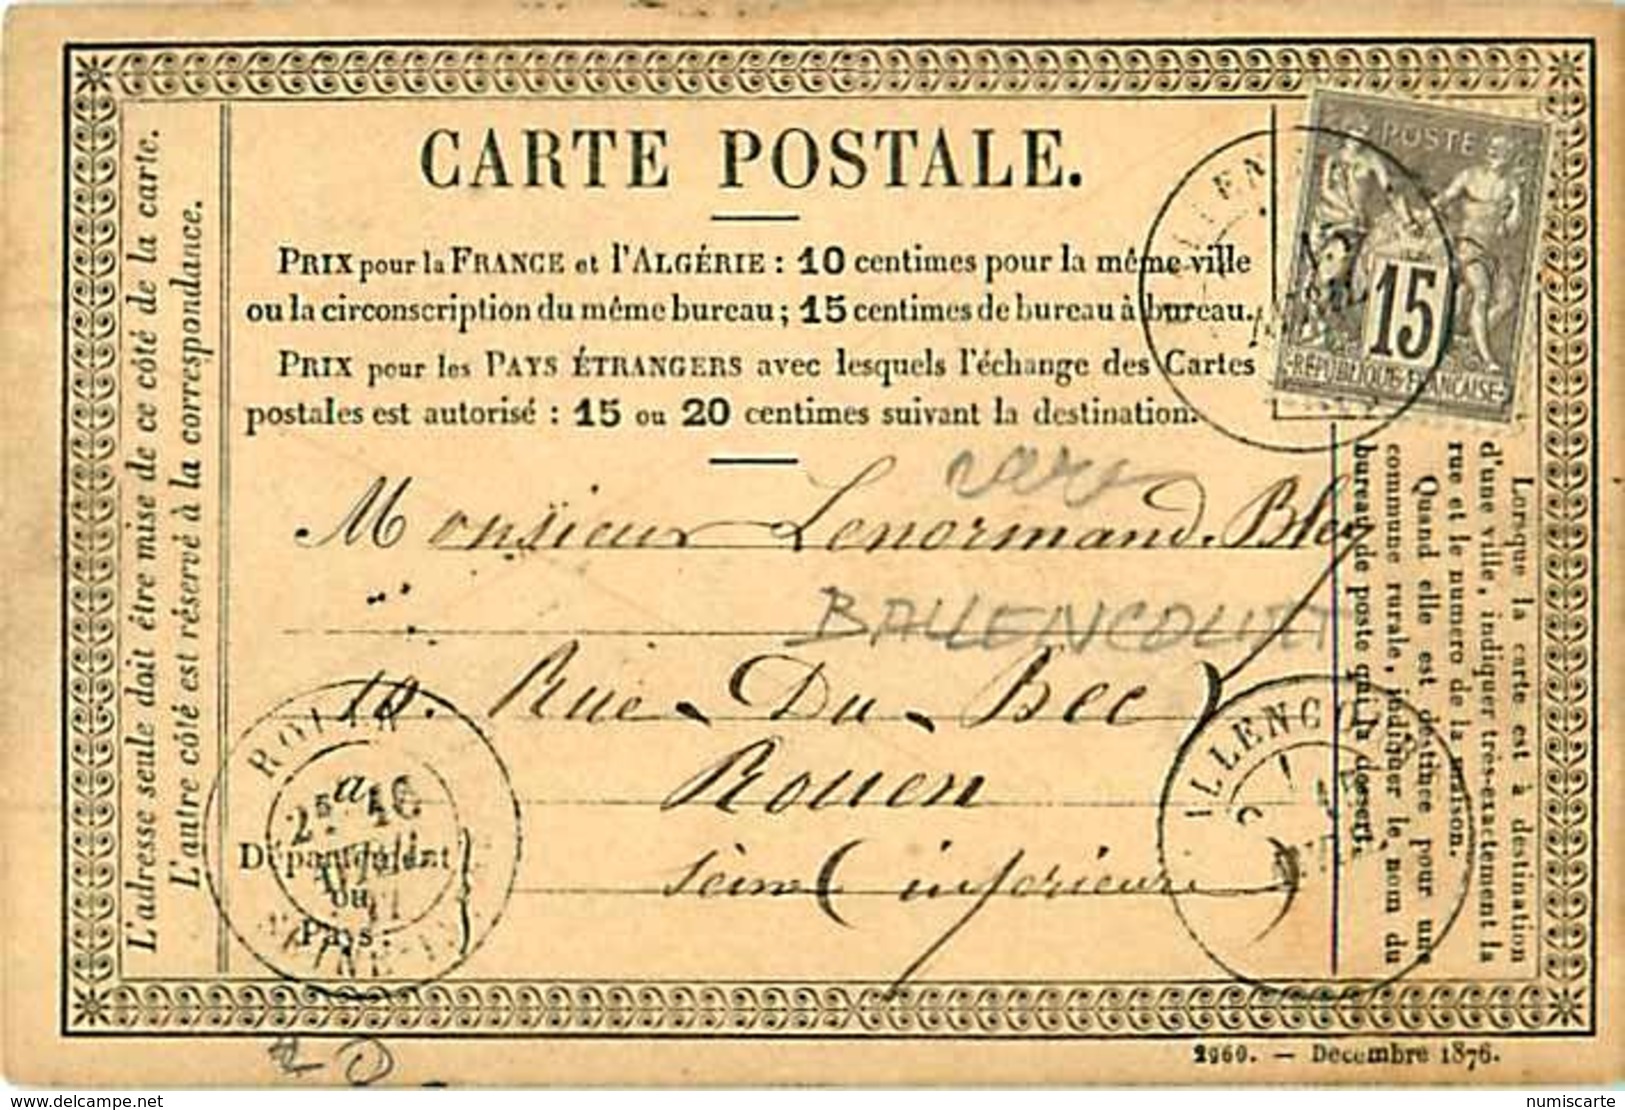 CARTE POSTALE.
PRIX pour la FRANCE et l'ALGÉRIE : 10 centimes pour la même ville
ou la circonscription du même bureau ; 15 centimes de bureau à bureau.
PRIX pour les PAYS ÉTRANGERS avec lesquels l'échange des Cartes
postales est autorisé : 15 ou 20 centimes suivant la destination.
POSTE
15
RÉPUBLIQUE FRANÇAISE
L'adresse seule doit être mise de ce côté de la carte.
L'autre côté est réservé à la correspondance.
rare
Monsieur Lenormand. Bley
BALLENCOURT
10. Rue Du Bec
Rouen
à
Seine (inférieure)
Département
ou
Pays.
ROUEN
ILLENCOUR
Lorsque la carte est à destination
d'une ville, indiquer très-exactement la
rue et le numéro de la maison.
Quand elle est destinée pour une
commune rurale, indiquer le nom du
bureau de poste qui la dessert.
2960. — Decembre 1876.
www.delcampe.net
numiscarte